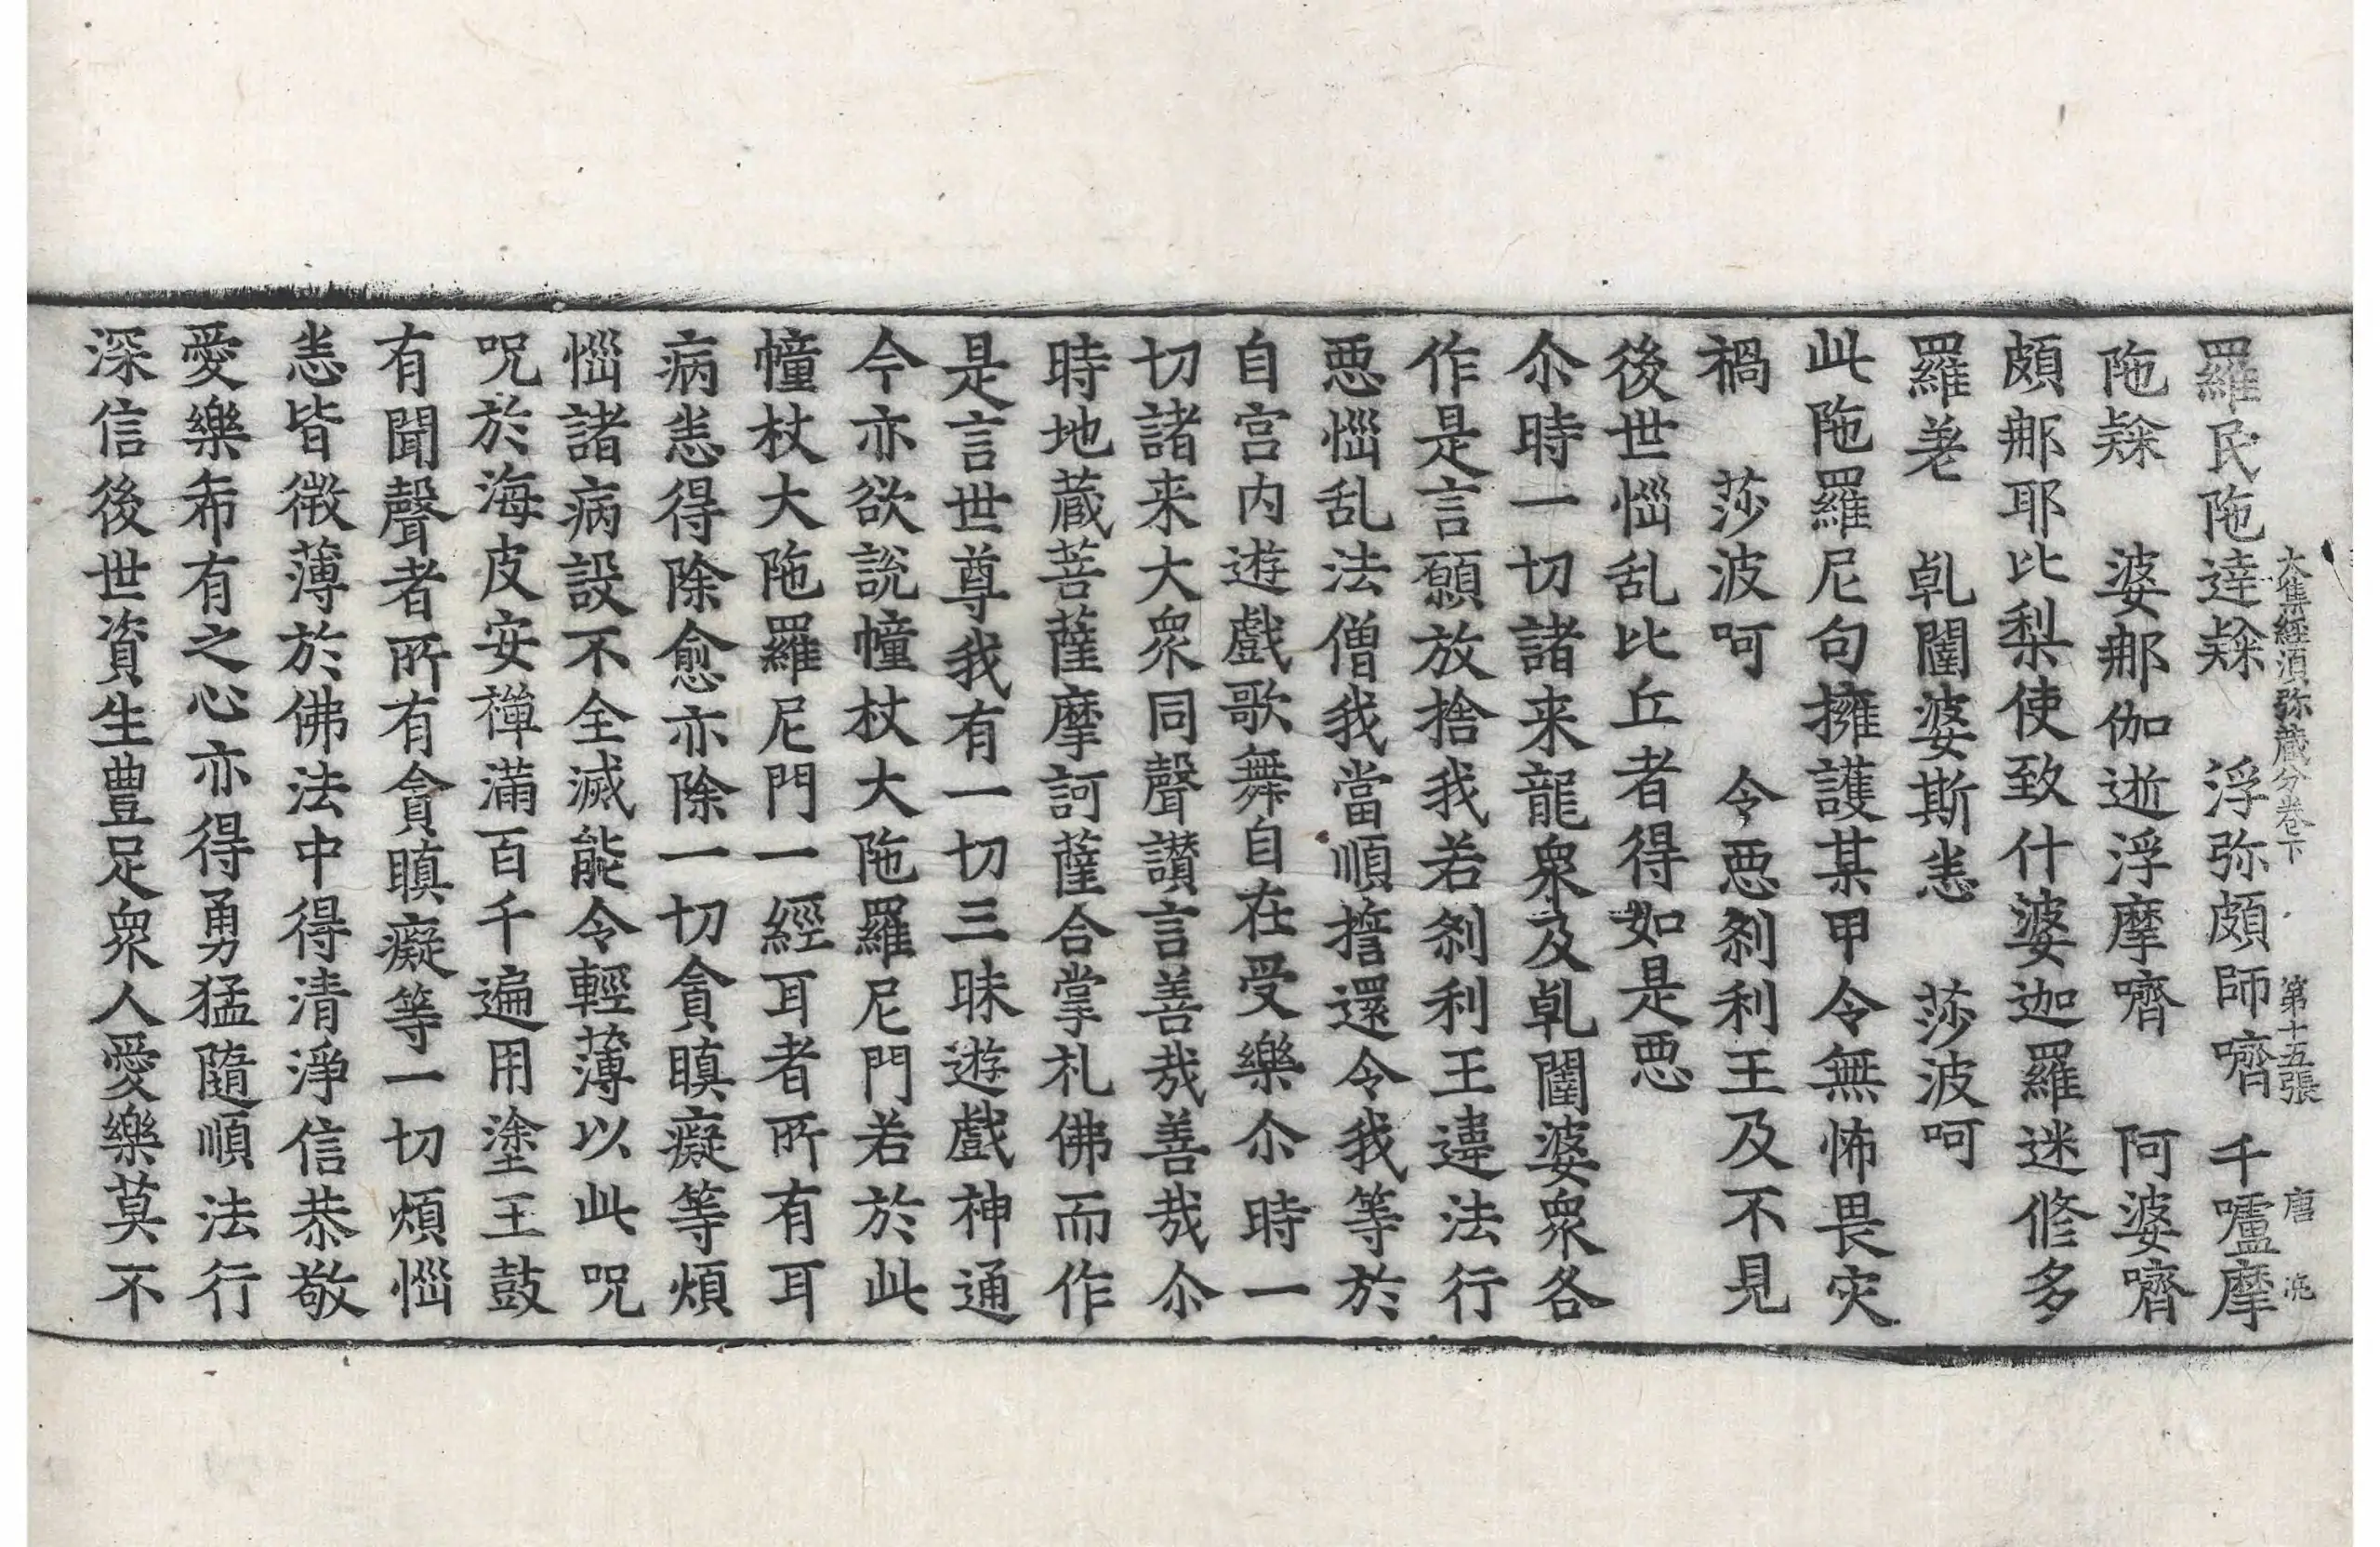 大集經須弥藏分卷下 第十五張 唐
羅民陁達𣣋 浮弥頗師嚌 千嚧摩
陁𣣋 婆𨙻伽逝浮摩嚌 阿婆嚌
頗𨙻耶比梨使致什婆迦羅迷修多
羅差 乹闥婆斯恙 莎波呵
此陁羅尼句擁護某甲令無怖畏灾
禍 莎波呵 令惡刹利王及不見
後世惱乱比丘者得如是惡
尒時一切諸来龍衆及乹闥婆衆各
作是言願放捨我若刹利王違法行
惡惱乱法僧我當順擔還令我等於
自宫内遊戲歌舞自在受樂尒時一
切諸来大衆同聲讃言善哉善哉尒
時地蔵菩薩摩訶薩合掌礼佛而作
是言世尊我有一切三昧遊戲神通
今亦欲說幢杖大陁羅尼門若於此
幢杖大陁羅尼門一經耳者所有耳
病恙得除愈亦除一切貪瞋癡等煩
惱諸病設不全滅能令輕薄以此呪
呪於海皮安禪滿百千遍用塗王鼓
有聞聲者所有貪瞋癡等一切煩惱
恙皆微薄於佛法中得清淨信恭敬
愛樂希有之心亦得勇猛隨順法行
深信後世資生豊足衆人愛樂莫不